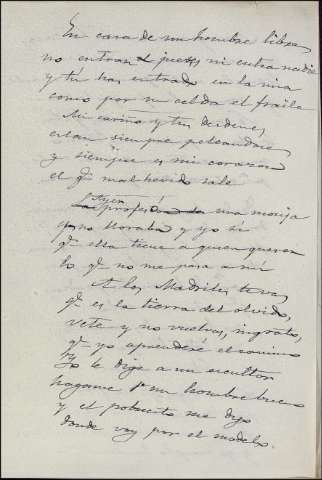 En casa de un hombre libre,
no entran jueces ni entra nadie
y tú has entrado en la mia
como por mi celda el fraile
Mi cariño y tus desdenes,
están siempre peleandose,
y siempre es mi corazon
el q.e mal herido sale
Ayer profesó una monja
no lloraba y yo sí
q.e ella tiene a quien querer
lo q.e no me pasa a mí
A los Madriles te vas,
q.e es la tierra del olvido,
vete y no vuelvas, ingrato,
q.e yo aprenderé el camino
Yo le dije a un escultor
hagame V. un hombre bueno
y el pobrecito me dijo
donde voy por el modelo.